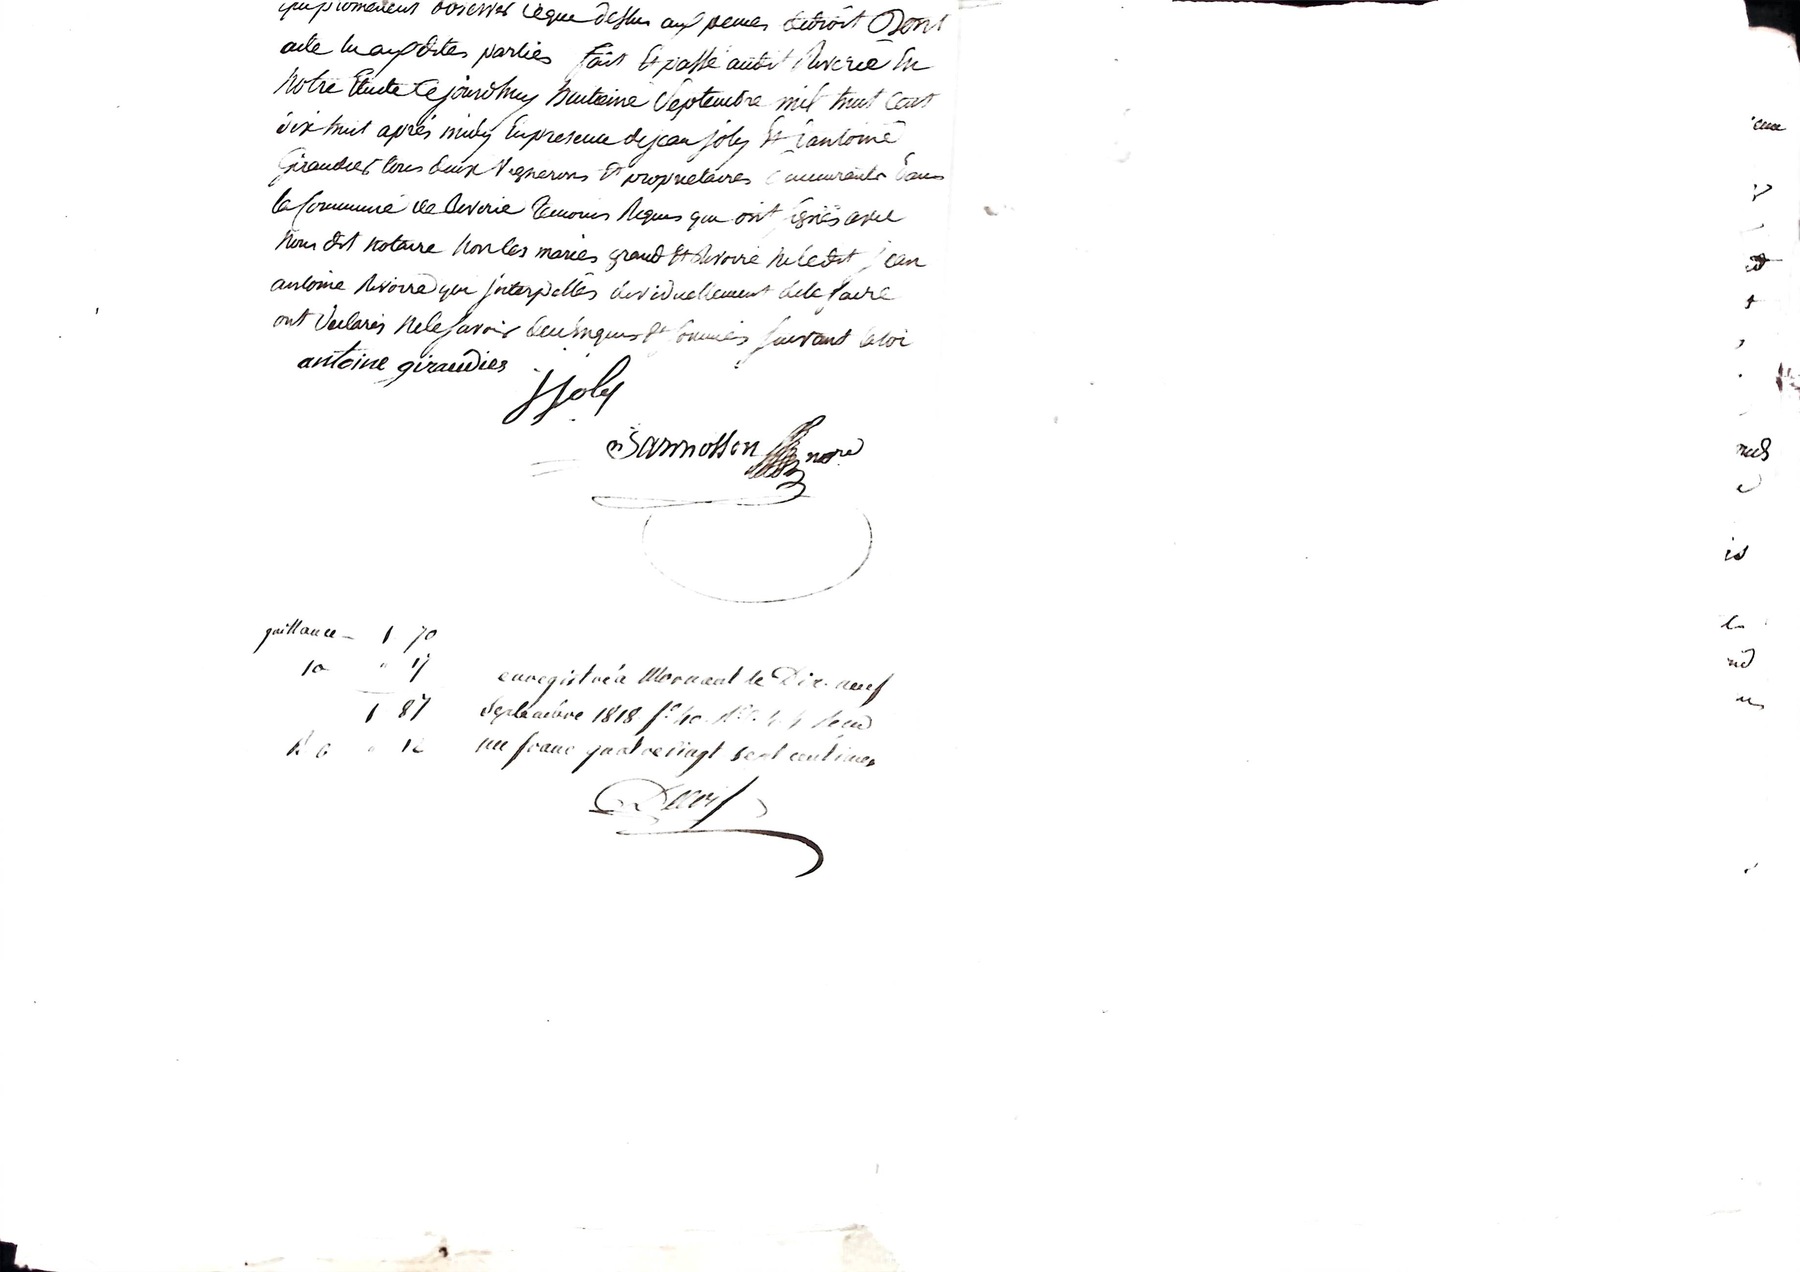 qui promettent observer ceque dessus aux peines de droit Dont
acte lu auxdites parties fait Et passé audit Riverie En
Notre Etude Cejourdhuy huitaine Septembre mil huit Cent
dix huit après midy En presence de jean joly Et dantoine
Giraudier tous deux Vignerons Et proprietaires demeurants dans
la Commune de Riverie temoins Requis qui ont signés avec
Nous dit notaire Non les mariés grand Et Rivoire Ni ledit jean
antoine Rivoire qui interpellés individuellement de le faire
ont declarés Nele savoir dece Enquis Et sommés suivant la loi
antoine giraudier
J Joly
notre
quittance - 1 70
10 " 17
enregistré à Mornant le Dix-neuf
1 87
Septembre 1818. fo 40. Reçu
12
un franc quatrevingt sept centimes